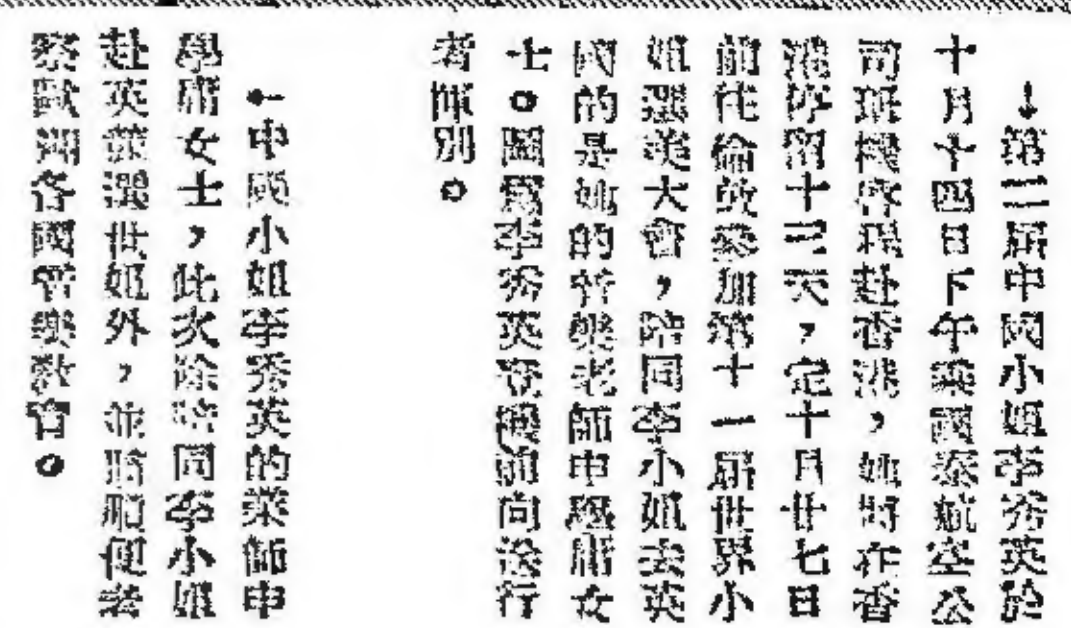 ↓第二屆中國小姐李秀英於
十月十四日下午乘國泰航空公
司班機啓程赴香港，她將在香
港停留十三天，定十月廿七日
前往倫敦參加第十一屆世界小
姐選美大會，陪同李小姐去英
國的是她的音樂老師申學庸女
士。圖爲李秀英登機前向送行
者揮別。
←中國小姐李秀英的業師申
學庸女士，此次除陪同李小姐
赴英競選世姐外，並將順便考
察歐洲各國音樂敎育。